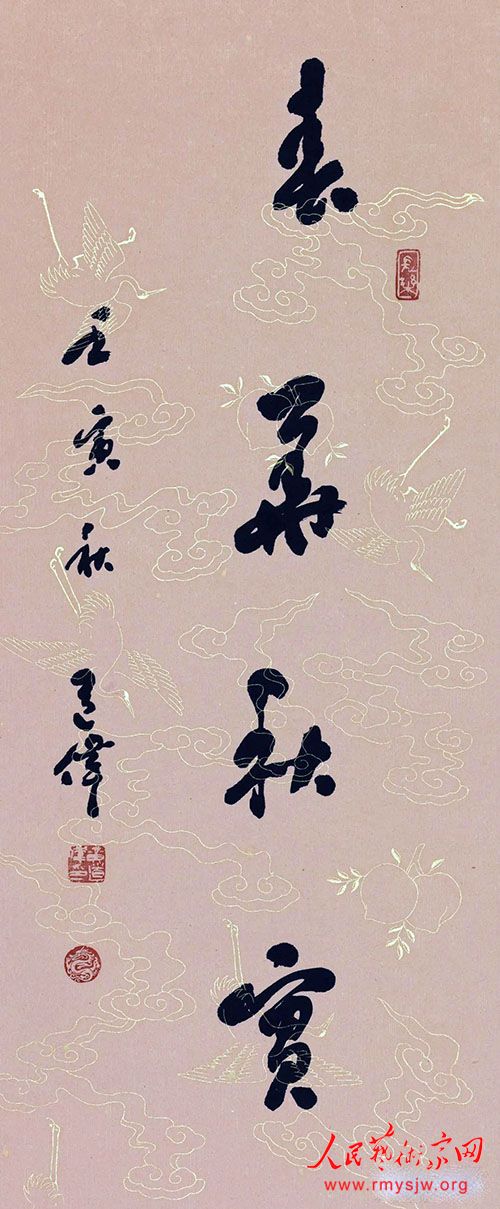 春華秋實
壬寅秋
道偉
人民藝術家网
www.rmysjw.org